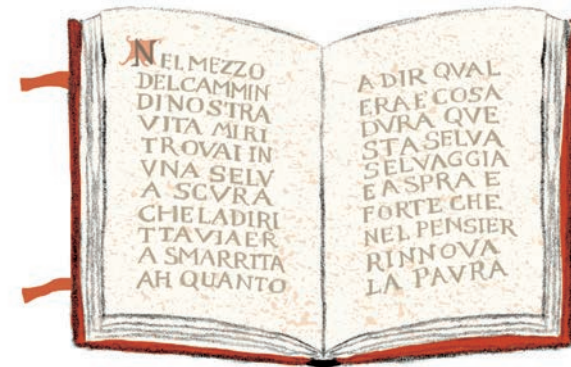 NEL MEZZO
DEL CAMMIN
DI NOSTRA
VITA MI RI
TROVAI IN
VNA SELV
A SCVRA
CHE LA DIRI
TTA VIA ER
A SMARRITA
AH QUANTO
A DIR QVAL
ERA E' COSA
DVRA QVE
STA SELVA
SELVAGGIA
E ASPRA E
FORTE CHE
NEL PENSIER
RINNOVA
LA PAVRA